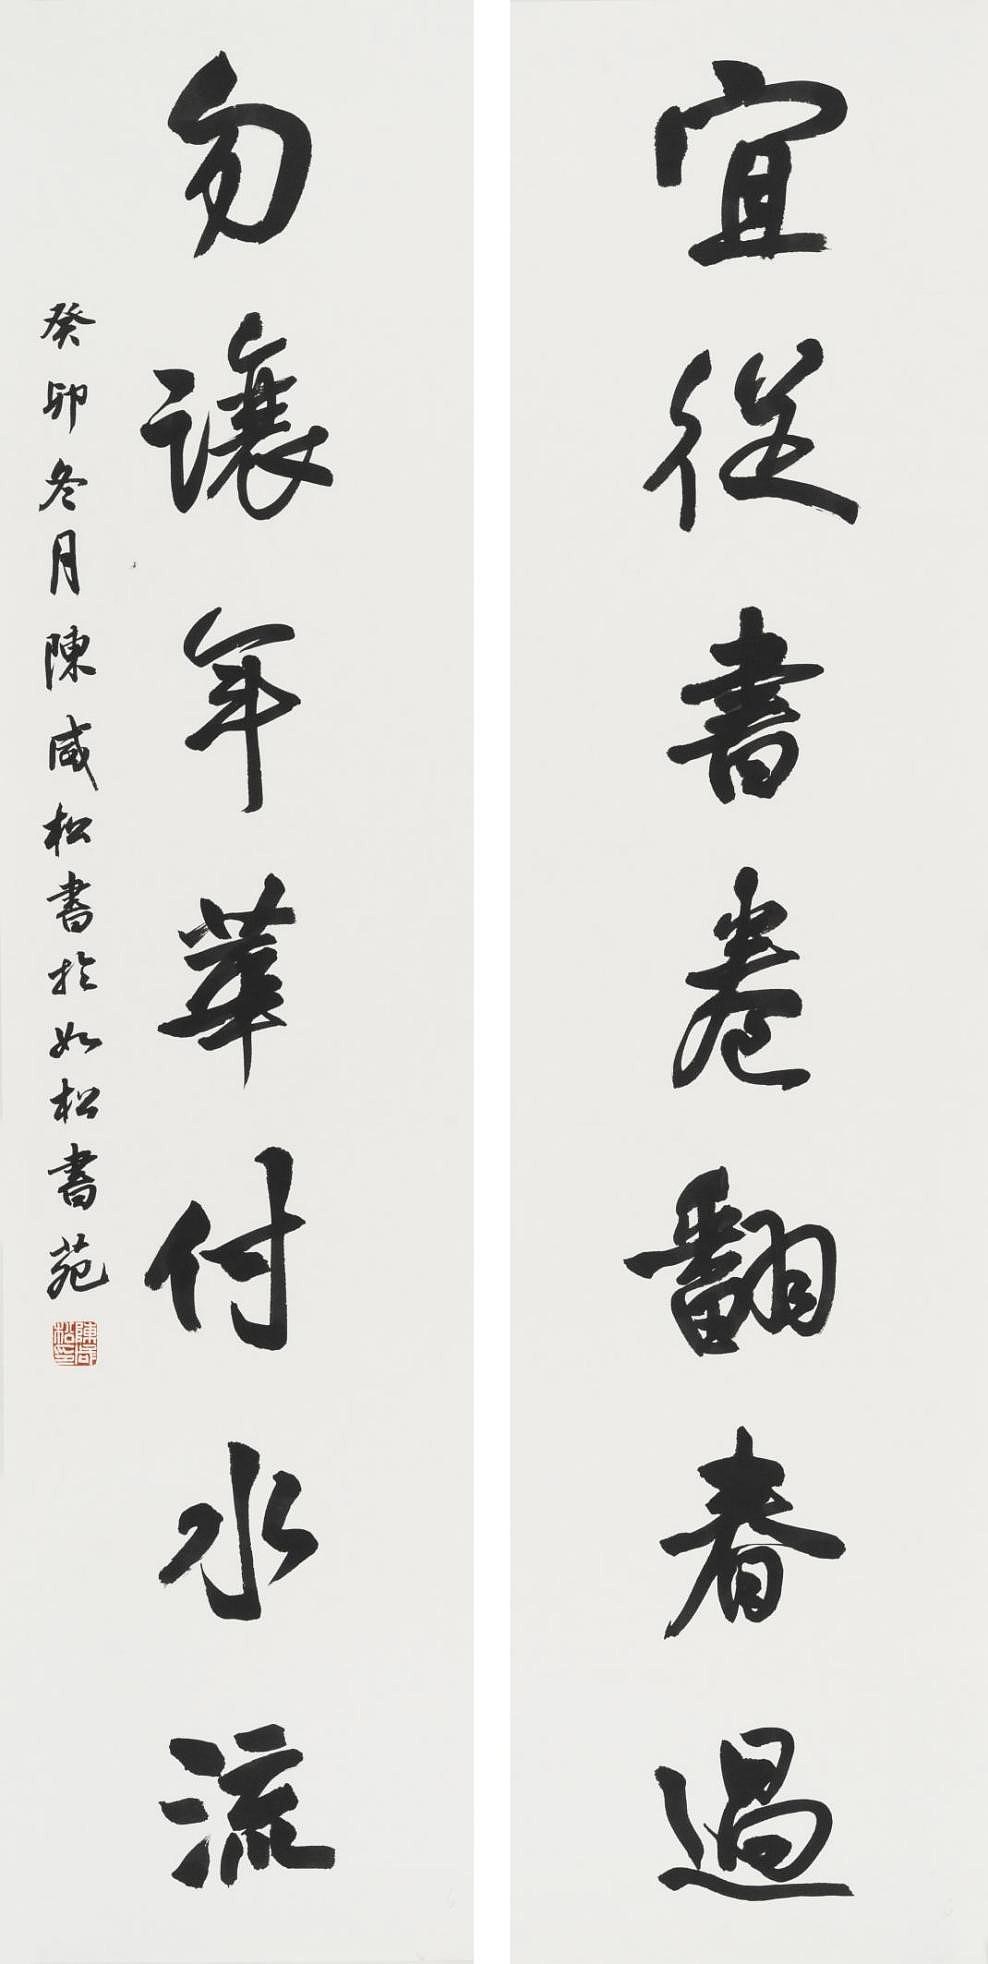 宜從書卷翻春過
勿讓年華付水流
癸卯冬月陳咸松書於如松書苑
陳咸松印